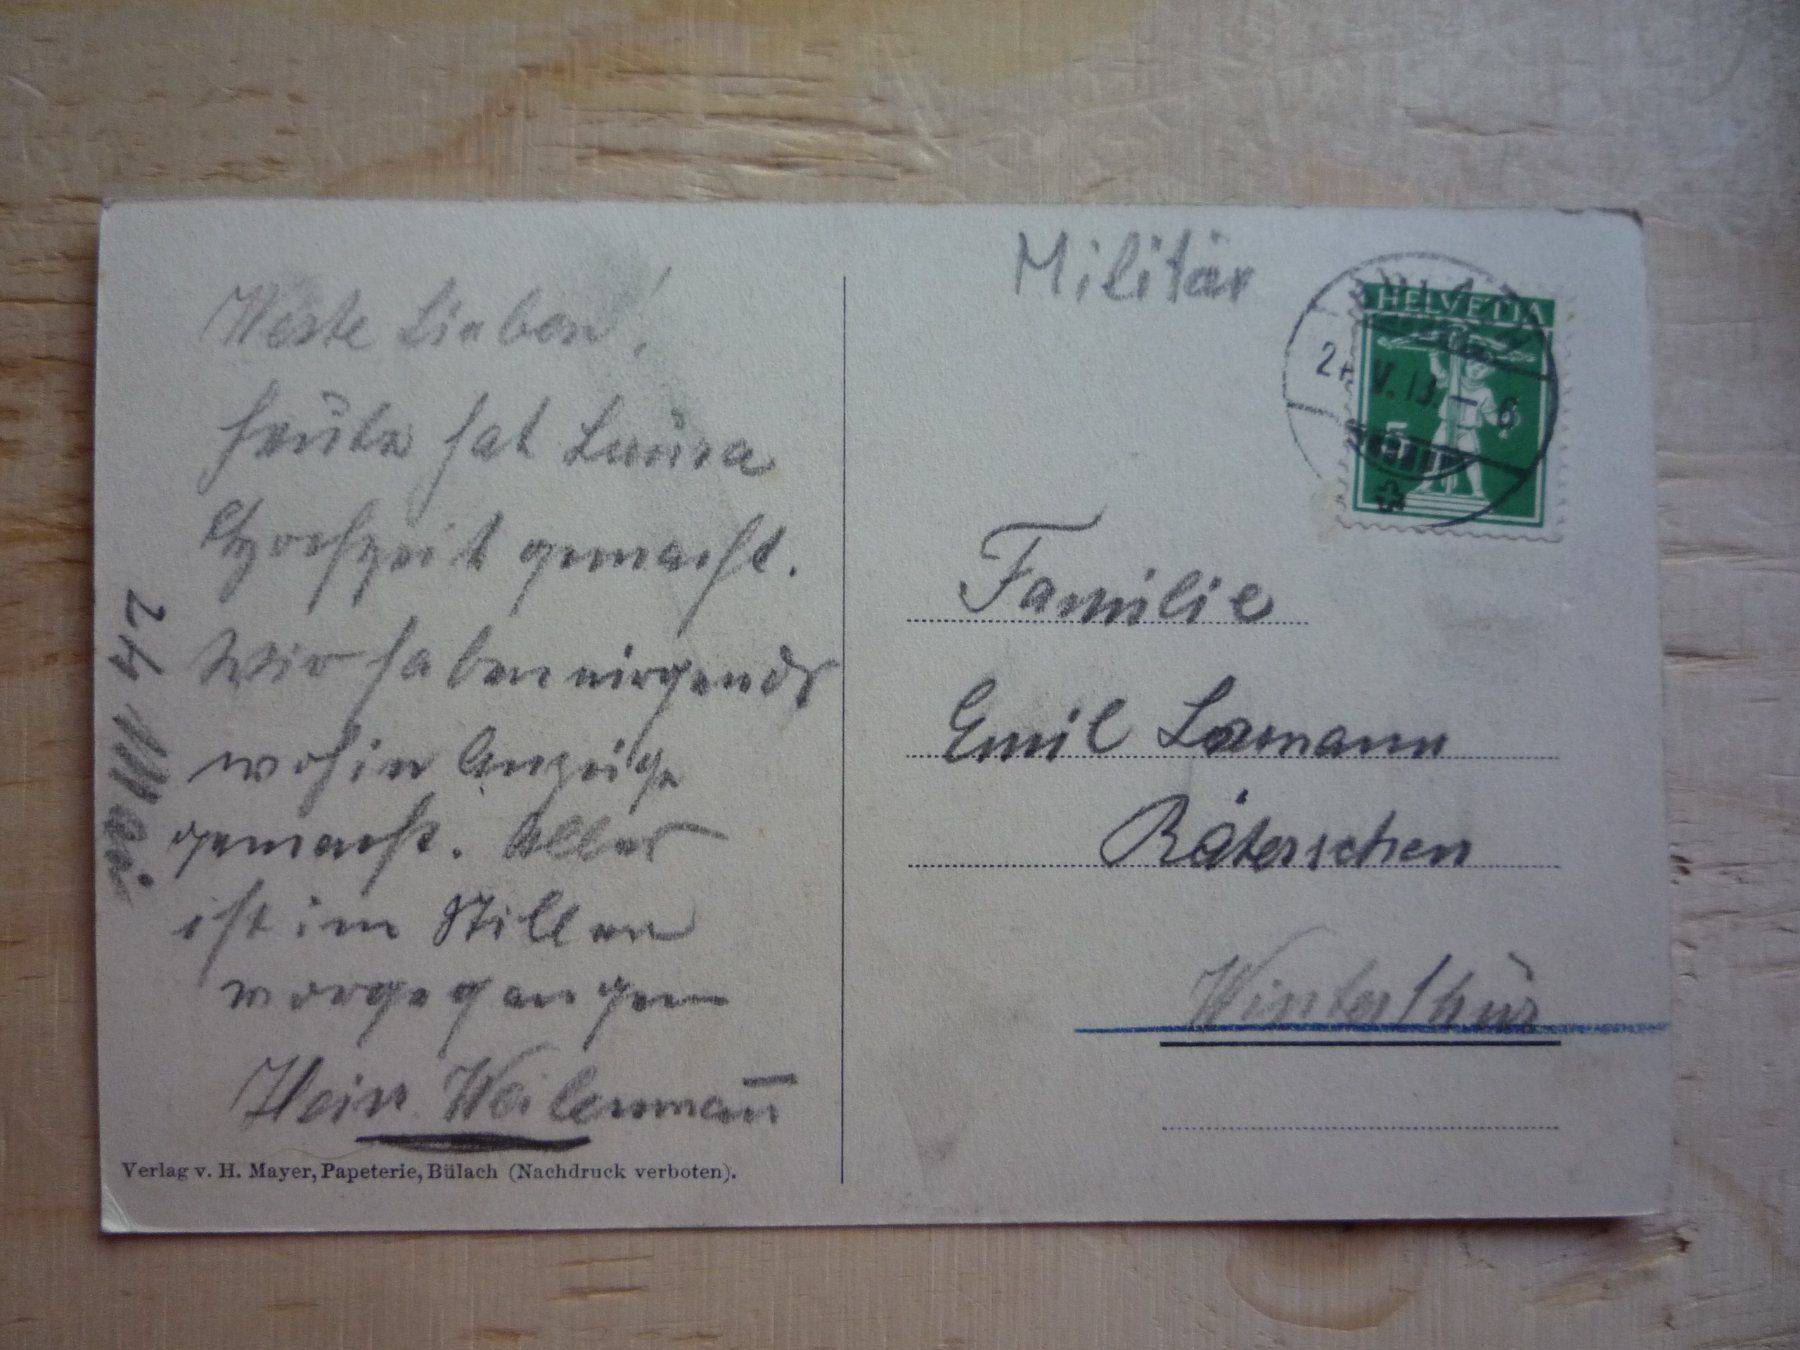 Werte Lieben!
heute hat Laura
Hochzeit gemacht.
Wir haben nirgends
wohin Anzeige
gemacht. Alles
ist im Stillen
vorgegangen
Hein Weilenmann
Verlag v. H. Mayer, Papeterie, Bülach (Nachdruck verboten).
Militär
HELVETIA
V. 13. – 6
5
Familie
Emil
Räterschen
Winterthur